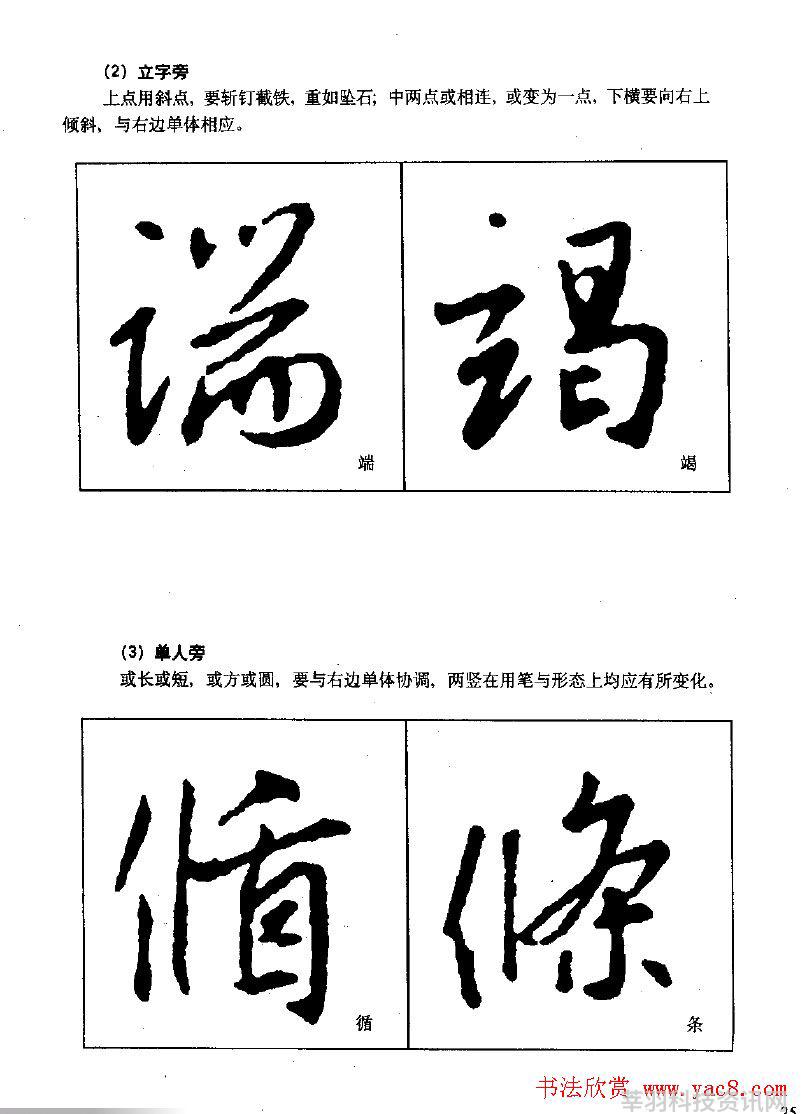 (2) 立字旁
上点用斜点，要斩钉截铁，重如坠石；中两点或相连，或变为一点，下横要向右上
倾斜，与右边单体相应。
端 竭
端 竭
(3) 单人旁
或长或短，或方或圆，要与右边单体协调，两竖在用笔与形态上均应有所变化。
循 條
循 条
书法欣赏 www.yac8.com
莘羽科技资讯网